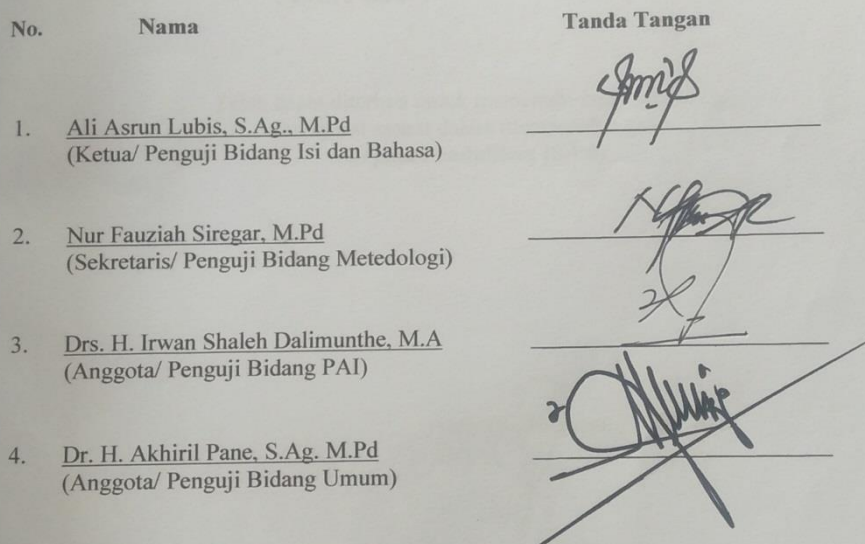 No. Nama Tanda Tangan
1. Ali Asrun Lubis, S.Ag., M.Pd
(Ketua/ Penguji Bidang Isi dan Bahasa)
2. Nur Fauziah Siregar, M.Pd
(Sekretaris/ Penguji Bidang Metedologi)
3. Drs. H. Irwan Shaleh Dalimunthe, M.A
(Anggota/ Penguji Bidang PAI)
4. Dr. H. Akhiril Pane, S.Ag. M.Pd
(Anggota/ Penguji Bidang Umum)